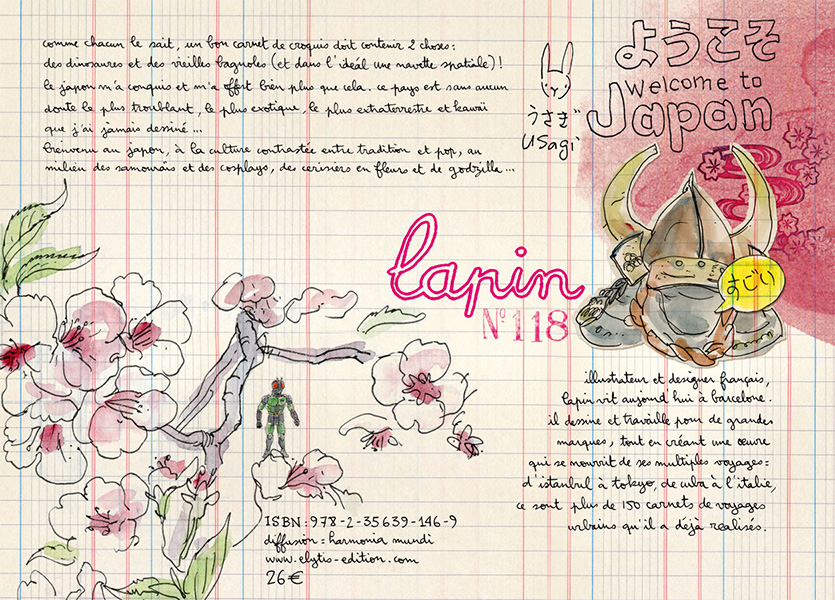 comme chacun le sait, un bon carnet de croquis doit contenir 2 choses:
des dinosaures et des vieilles bagnoles (et dans l'idéal une navette spatiale)!
le japon m'a conquis et m'a offert bien plus que cela. ce pays est sans aucun
doute le plus troublant, le plus exotique, le plus extraterrestre et kawaii
que j'ai jamais dessiné ...
bienvenu au japon, à la culture contrastée entre tradition et pop, au
milieu des samouraïs et des cosplays, des cerisiers en fleurs et de godzilla ...
うさぎ
Usagi
ようこそ
Welcome to
Japan
lapin
Nº118
すごい
illustrateur et designer français,
lapin vit aujourd'hui à barcelone.
il dessine et travaille pour de grandes
marques, tout en créant une œuvre
qui se nourrit de ses multiples voyages:
d'istanbul à tokyo, de cuba à l'italie,
ce sont plus de 150 carnets de voyages
urbains qu'il a déjà realisés.
ISBN: 978-2-35639-146-9
diffusion = harmonia mundi
www.elytis-edition.com
26€